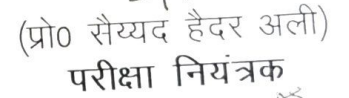 (प्रो0 सैय्यद हैदर अली)
परीक्षा नियंत्रक